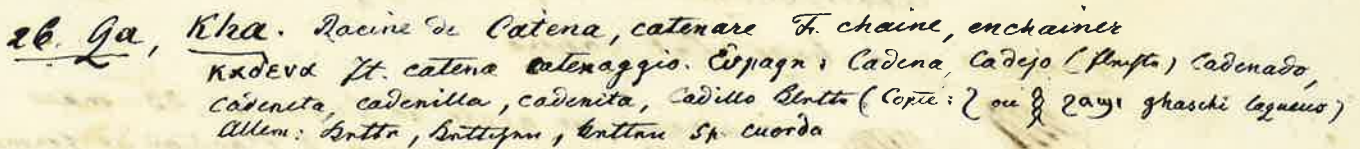 26. Ga, Kha. Racine de Catena, catenare Fr. chaine, enchainer
καδενα It. catena catenaggio. Espagn: Cadena, Cadejo () Cadenado,
cadeneta, cadenilla, cadenita, Cadillo (Copte: ϩ ou ϧ ϩαϣι ghaschi laqueus)
Allem: Sp. cuerda